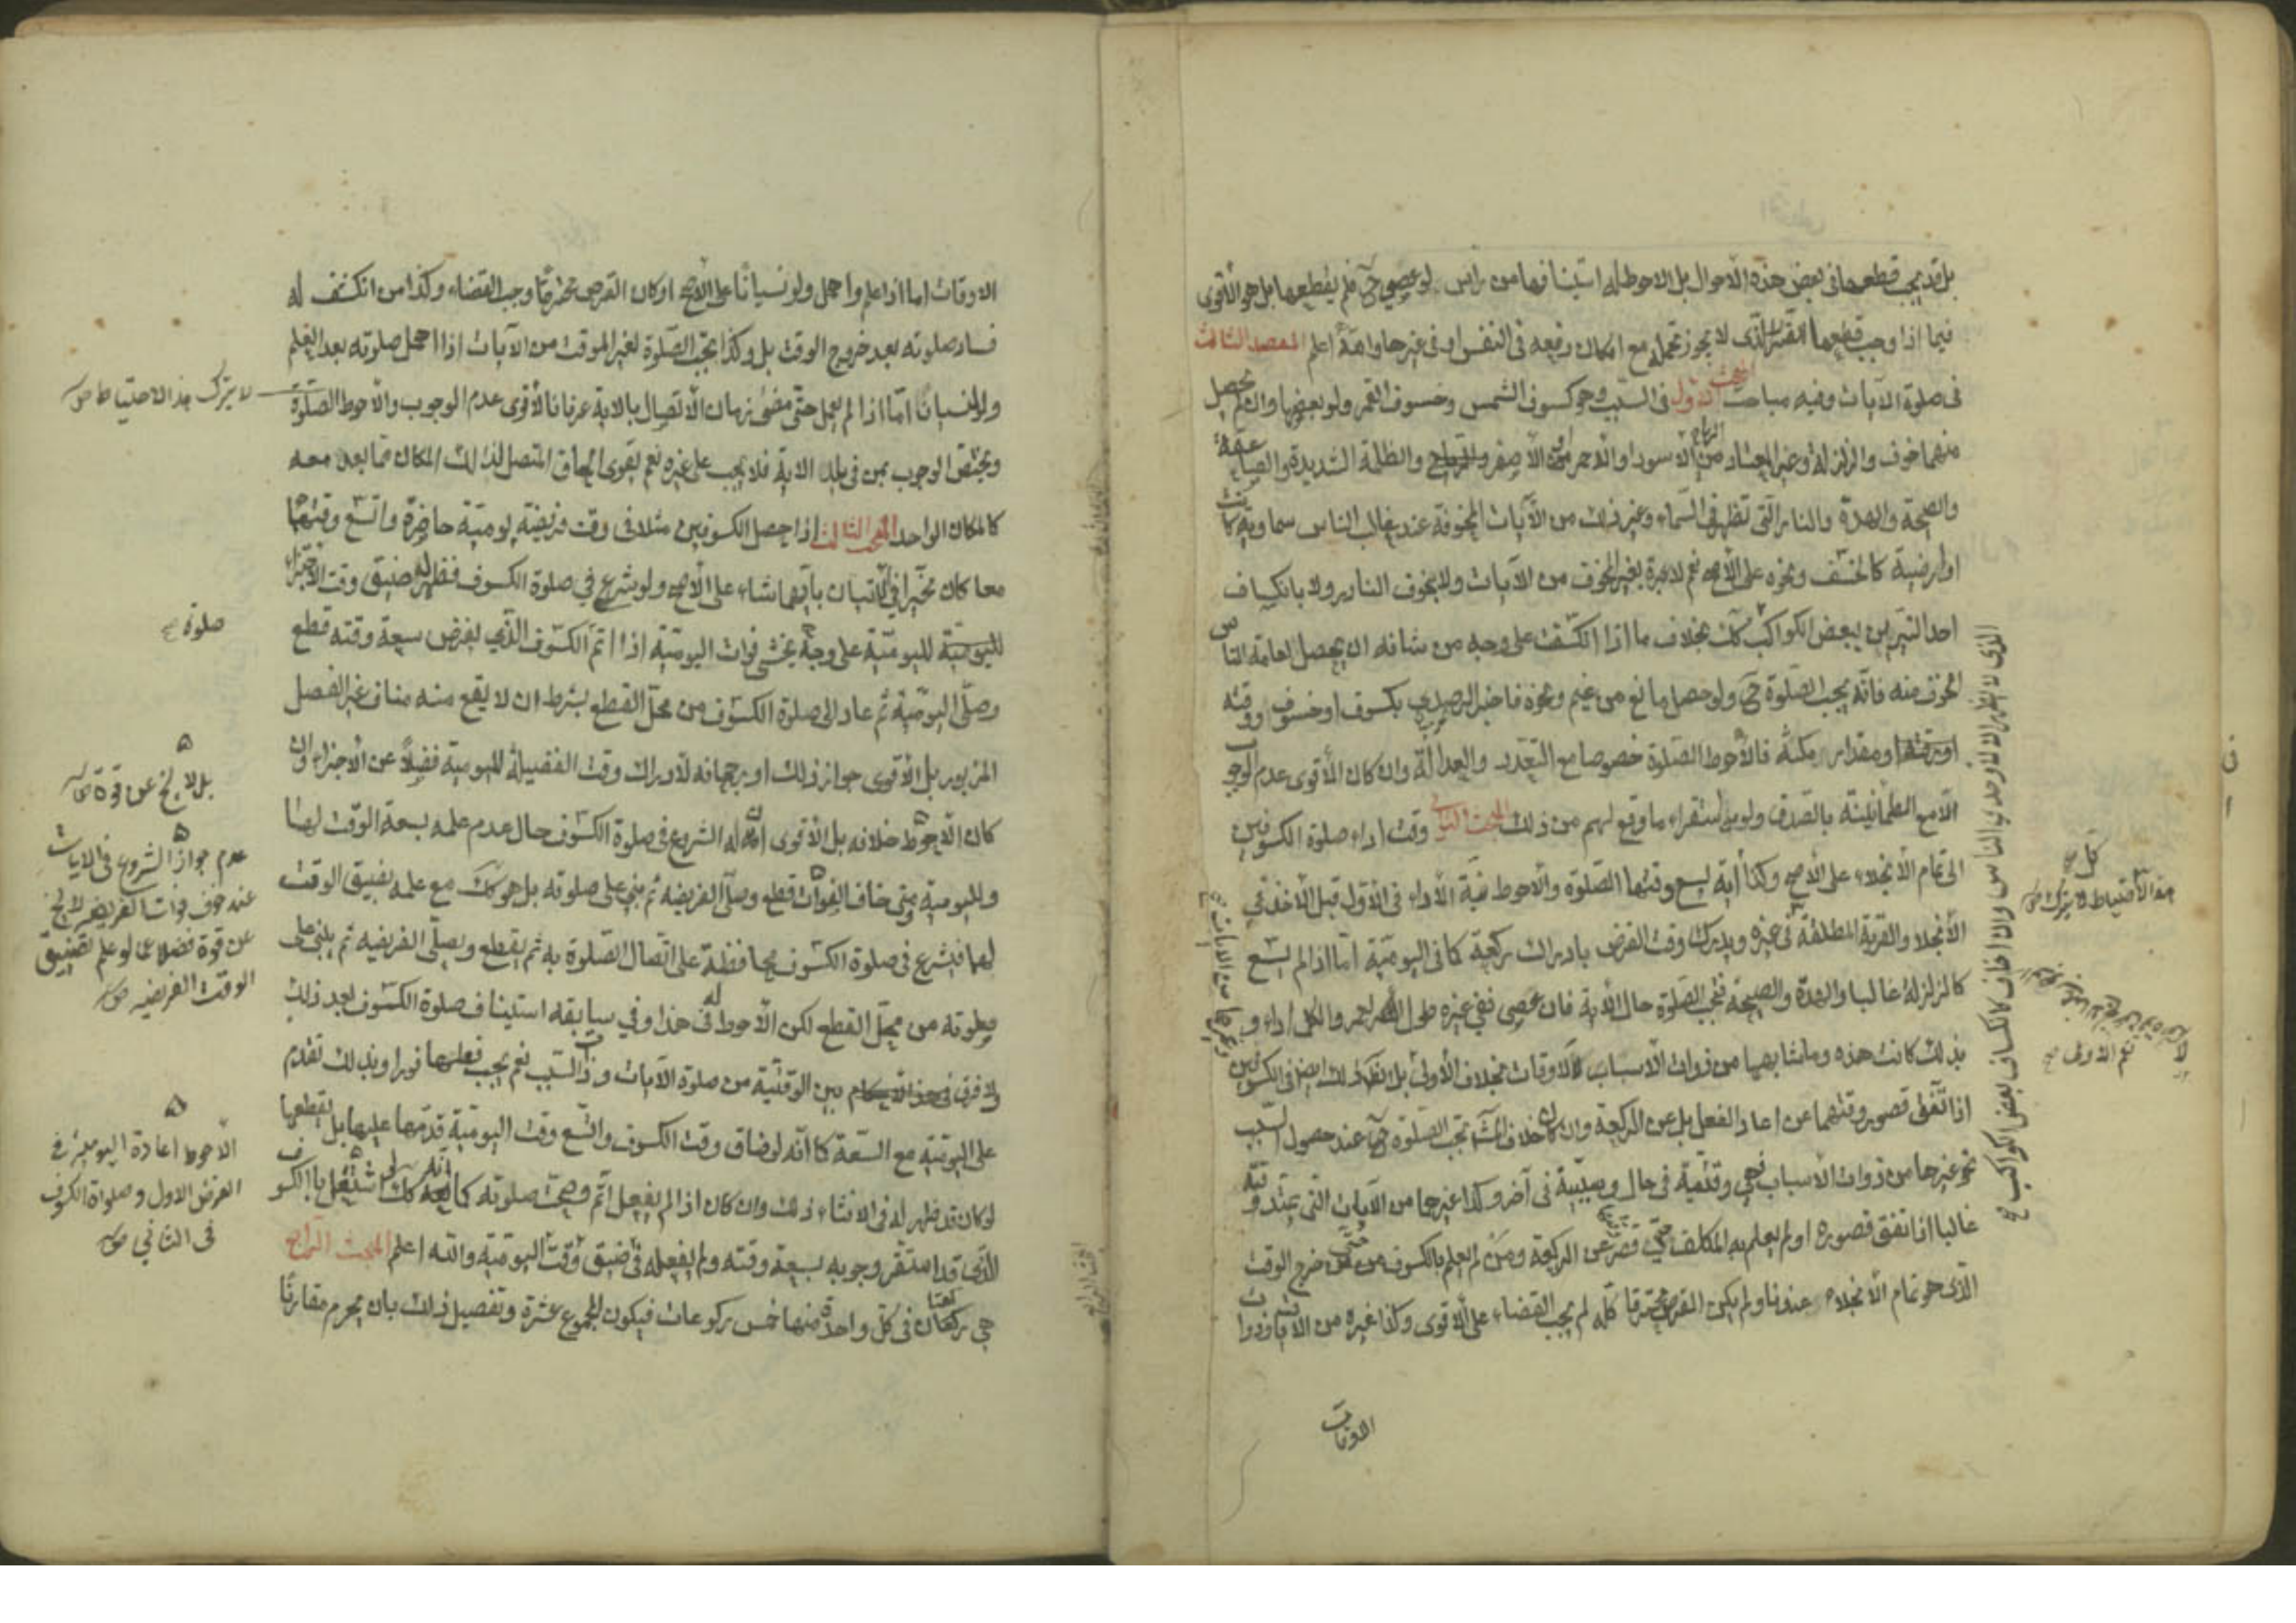 بل قد يجب قطعها في بعض هذه الاحوال بل الاحوط له استينافها من راس لو عصى ح فلم يقطعها بل هو الأقوى
فيما اذا وجب قطعها للضرر الذي لا يجوز تحمله مع امكان رفعه في النفس او في غيرها والله اعلم المقصد الثالث
في صلوة الآيات وفيه مباحث المبحث الاول في السبب وهو كسوف الشمس وخسوف القمر ولو بعضها وان لم يحصل
منهما خوف والزلزلة وغير المعتاد من الرياح الاسود او الاحمر او الاصفر والظلمة الشديدة والصاعقة
والصيحة والهدة والنار التي تظهر في السماء وغير ذلك من الآيات المخوفة عند غالب الناس سماوية كانت
او ارضية كالخسف ونحوه على الأصح نعم لا عبرة بغير المخوف من الآيات ولا بخوف النادر ولا بانكساف
احد النيرين ببعض الكواكب كك بخلاف ما اذا انكسفت على وجه من شانه ان يحصل لعامة الناس
الخوف منه فانه يجب الصلوة ح ولو حصل مانع من غيم ونحوه فاخبر الرصدي بكسوف او خسوف ووقته
ومقدار مكثه فالأحوط الصلوة خصوصا مع التعدد والعدالة وان كان الأقوى عدم الوجوب
الا مع الطمانينة بالصدق ولو باستقراء ما وقع لهم من ذلك المبحث الثاني وقت اداء صلوة الكسوفين
الى تمام الأنجلاء على الأصح وكذا آية يسع وقتها الصلوة والأحوط نية الأداء في الأول قبل الأخذ في
الأنجلاء والقربة المطلقة في غيره ويدرك وقت الفرض بادراك ركعة كما في اليومية اما اذا لم يسع
كالزلزلة غالبا والهدة والصيحة فتجب الصلوة حال الآية فان عصى ففي غيره طول العمر والكل اداء و
بذلك كانت هذه وما شابهها من ذوات الأسباب لا الاوقات بخلاف الأولى بل الكسوفين
اذا اتفق قصور وقتهما عن اعداد الفعل بل عن الركعة وان كان خلاف تجب الصلوة عند حصول السبب
نحو غيرها من ذوات الأسباب فهي وقتية في حال وسببية في آخر وكذا غيرها من الآيات التي يمتد وقته
غالبا اذا اتفق قصوره او لم يعلم به المكلف حتى قصر عن الركعة ومن لم يعلم بالكسوف حتى خرج الوقت
الذي هو تمام الأنجلاء عندنا ولم يكن القرص محترقا كله لم يجب القضاء على الأقوى وكذا غيره من الآيات ذوات
الاوقات
كل
هذا الاحتياط لا يترك
نعم الاولى
الاوقات اما اذا علم واهمل ولو نسيانا على الأصح او كان القرص محترقا وجب القضاء وكذا من انكشف له
فساد صلوته بعد خروج الوقت بل وكذا يجب الصلوة لغير الموقت من الآيات اذا اهمل صلوته بعد العلم
ولو نسيانا اما اذا لم يعلم حتى مضى زمان الأتصال بالاية عرفا فالأقوى عدم الوجوب والأحوط الصلوة
ويختص الوجوب بمن في بلد الاية فلا يجب على غيره نعم يقوى الحاق المتصل بذلك المكان مما يعد معه
كالمكان الواحد المبحث الثالث اذا حصل الكسوفين مثلا في وقت فريضة يومية حاضرة واتسع وقتهما
معا كان مخيرا في الاتيان بايهما شاء على الأصح ولو شرع في صلوة الكسوف فظهر له ضيق وقت الاجزاء
لليومية على وجه يخشى فوات اليومية اذا اتم الكسوف الذي يفرض سعة وقته قطع
وصلى اليومية ثم عاد الى صلوة الكسوف من محل القطع بشرط ان لا يقع منه مناف غير الفصل
المزبور بل الأقوى جواز ذلك او رجحانه لأدراك وقت الفضيلة لليومية فضلا عن الأجزاء وان
كان الأحوط خلافه بل الأقوى ان له الشروع في صلوة الكسوف حال عدم علمه بسعة الوقت لها
ولليومية ومتى خاف الفوات قطع وصلى الفريضة ثم بنى على صلوته بل هو كك مع علمه بضيق الوقت
لهما فيشرع في صلوة الكسوف محافظة على اتصال الصلوة به ثم يقطع ويصلي الفريضة ثم يبنى على
صلوته من محل القطع لكن الأحوط له في هذا وفي سابقه استيناف صلوة الكسوف بعد ذلك
ولا فرق بين الوقتية من صلوة الآيات وذات السبب نعم يجب فعلها فورا وبذلك تقدم
على اليومية مع السعة كما انه لو ضاق وقت الكسوف واتسع وقت اليومية قدمها عليها بل يقطعها
لو كان قد ظهر له في الاثناء ذلك وان كان اذا لم يفعل اتم وصحت صلوته كما انه كك لو اشتغل بالكسوف
الذي قد استقر وجوبه بسعة وقته ولم يفعله في ضيق وقت اليومية والله اعلم المبحث الرابع
هي ركعتان في كل واحدة منها خمس ركوعات فيكون المجموع عشرة وتفصيل ذلك بان يحرم مقارنا
لا يترك هذا الاحتياط
صلوة
بل لا يخ عن قوة
عدم جواز الشروع في الايات
عند خوف فوات الفريضة لا يخ
عن قوة فضلا عما لو علم تضييق
الوقت الفريضه
الأحوط اعادة اليومية في
الفرض الاول وصلوة الكسوف
في الثاني